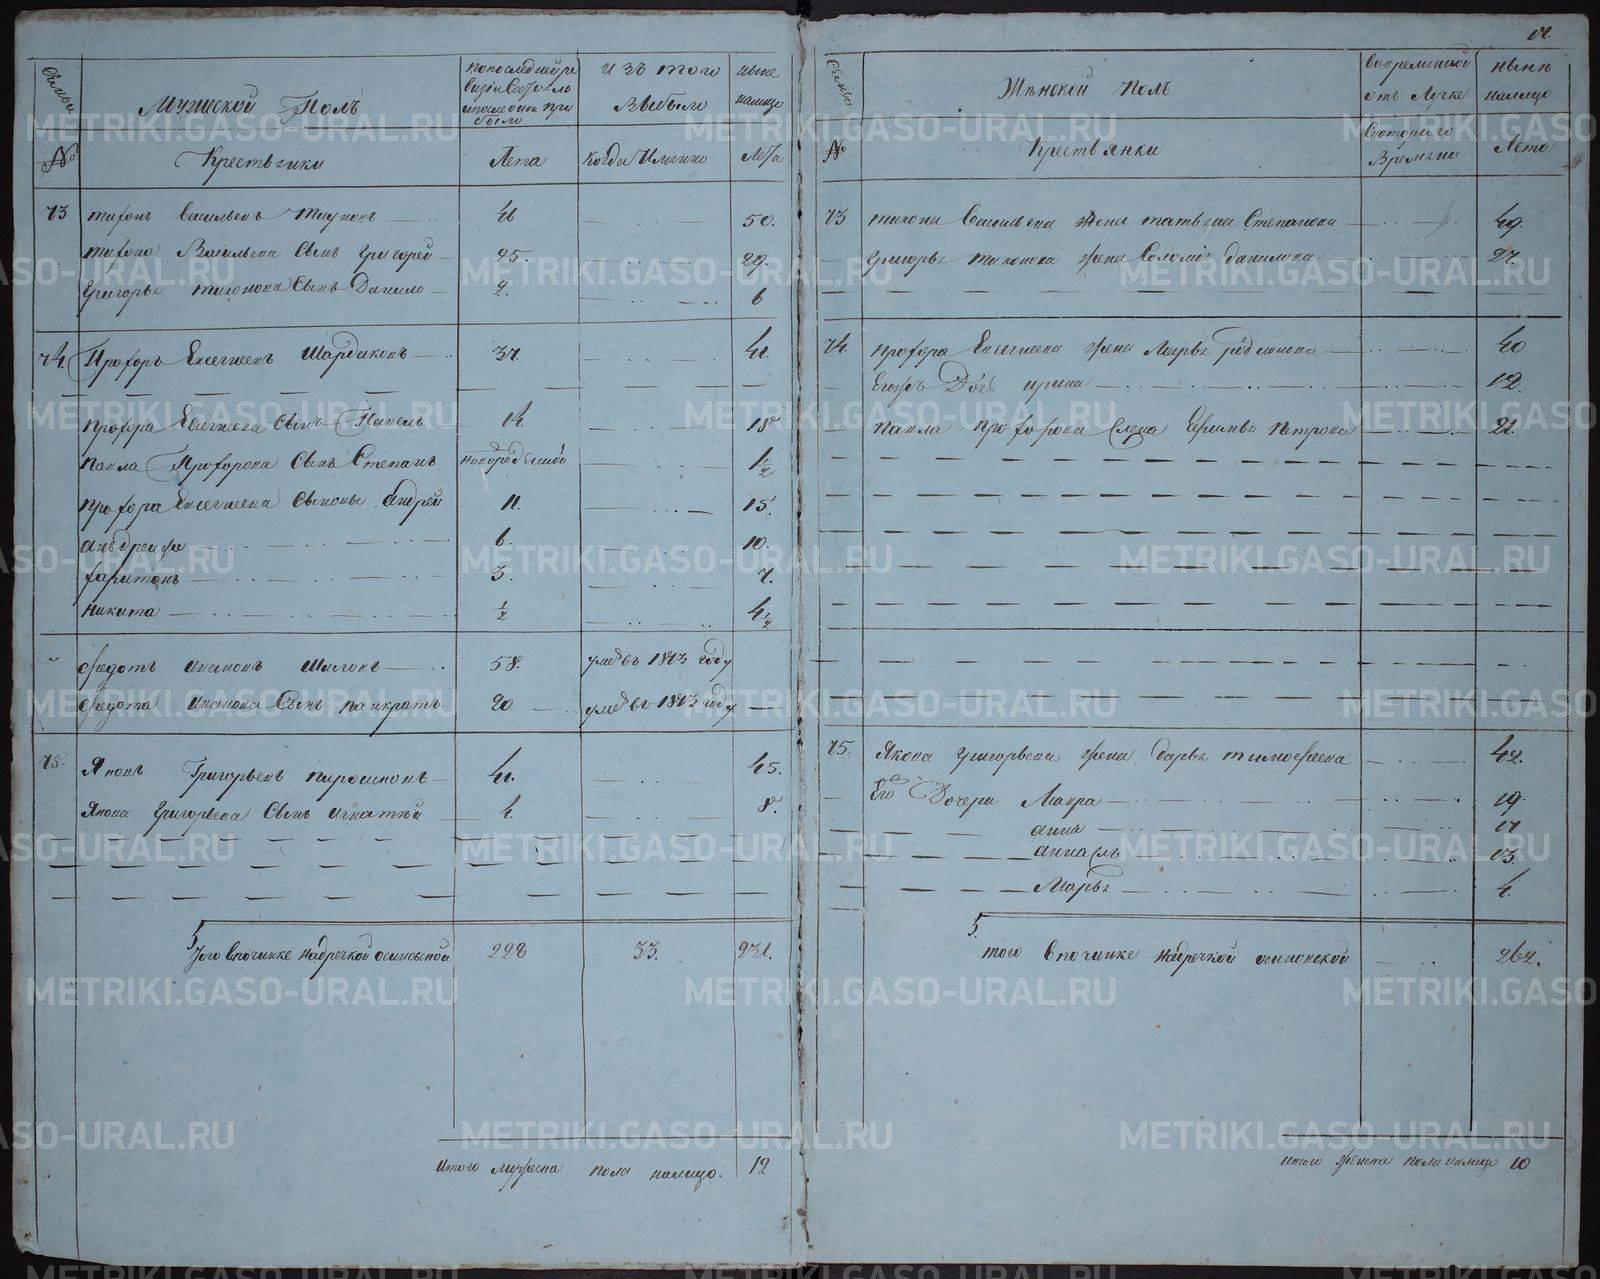 17.
Семьи
Мужеской Полъ
попоследней ре
визiи состояло
ипосле оной при
было
изъ того
Выбыло
ныне
налицо
№
Крестьяни
Лета
когда Имянно
Лета
73
тихонъ Васильевъ
46
50.
тихона Васильева Сынъ Григорей
25.
29.
Григорья тихонова Сынъ Данило
2.
6
74.
Прохоръ Евсегнеевъ Шардаковъ
37.
41.
прохора Евсегнеева Сынъ Павелъ
14.
18
павла Прохорова Сынъ Степанъ
новорожденной
1 1/2
прохора Евсегнеева Сыновья андрей
11.
15.
андрей же
6.
10.
харитонъ
3.
7.
Никита
1/2
4 1/2
Федотъ ивановъ Шиловъ
58.
умре въ 1813 году
Федота иванова Сынъ панкратъ
20
умре въ 1813 году
75.
Яковъ Григорьевъ
41.
45.
Якова Григорьева Сынъ игнатей
4.
8.
Итого впочинке надречкой осиновской
228
33.
231.
Итого мужеска пола налицо.
12
Семьи
Женской полъ
вовременной
отъ Лучке
ныне
налицо
№
Крестьянки
Скоторого
Времени
Лета
73
тихона Васильева жена татьяна Степанова
49.
Григорья тихонова жена Соломия данилова
27.
74.
прохора Евсегнеева жена Марья родионова
40
Егожъ Дочь ирина
12.
павла прохорова жена Ефимья петрова
21.
75.
Якова Григорьева жена дарья тимофеева
42.
Его Дочери Мавра
19.
анна
17
анна
13.
Марья
4.
Итого впочинке надречкой осиновской
262.
итого женска пола налицо 10
METRIKI.GASO-URAL.RU